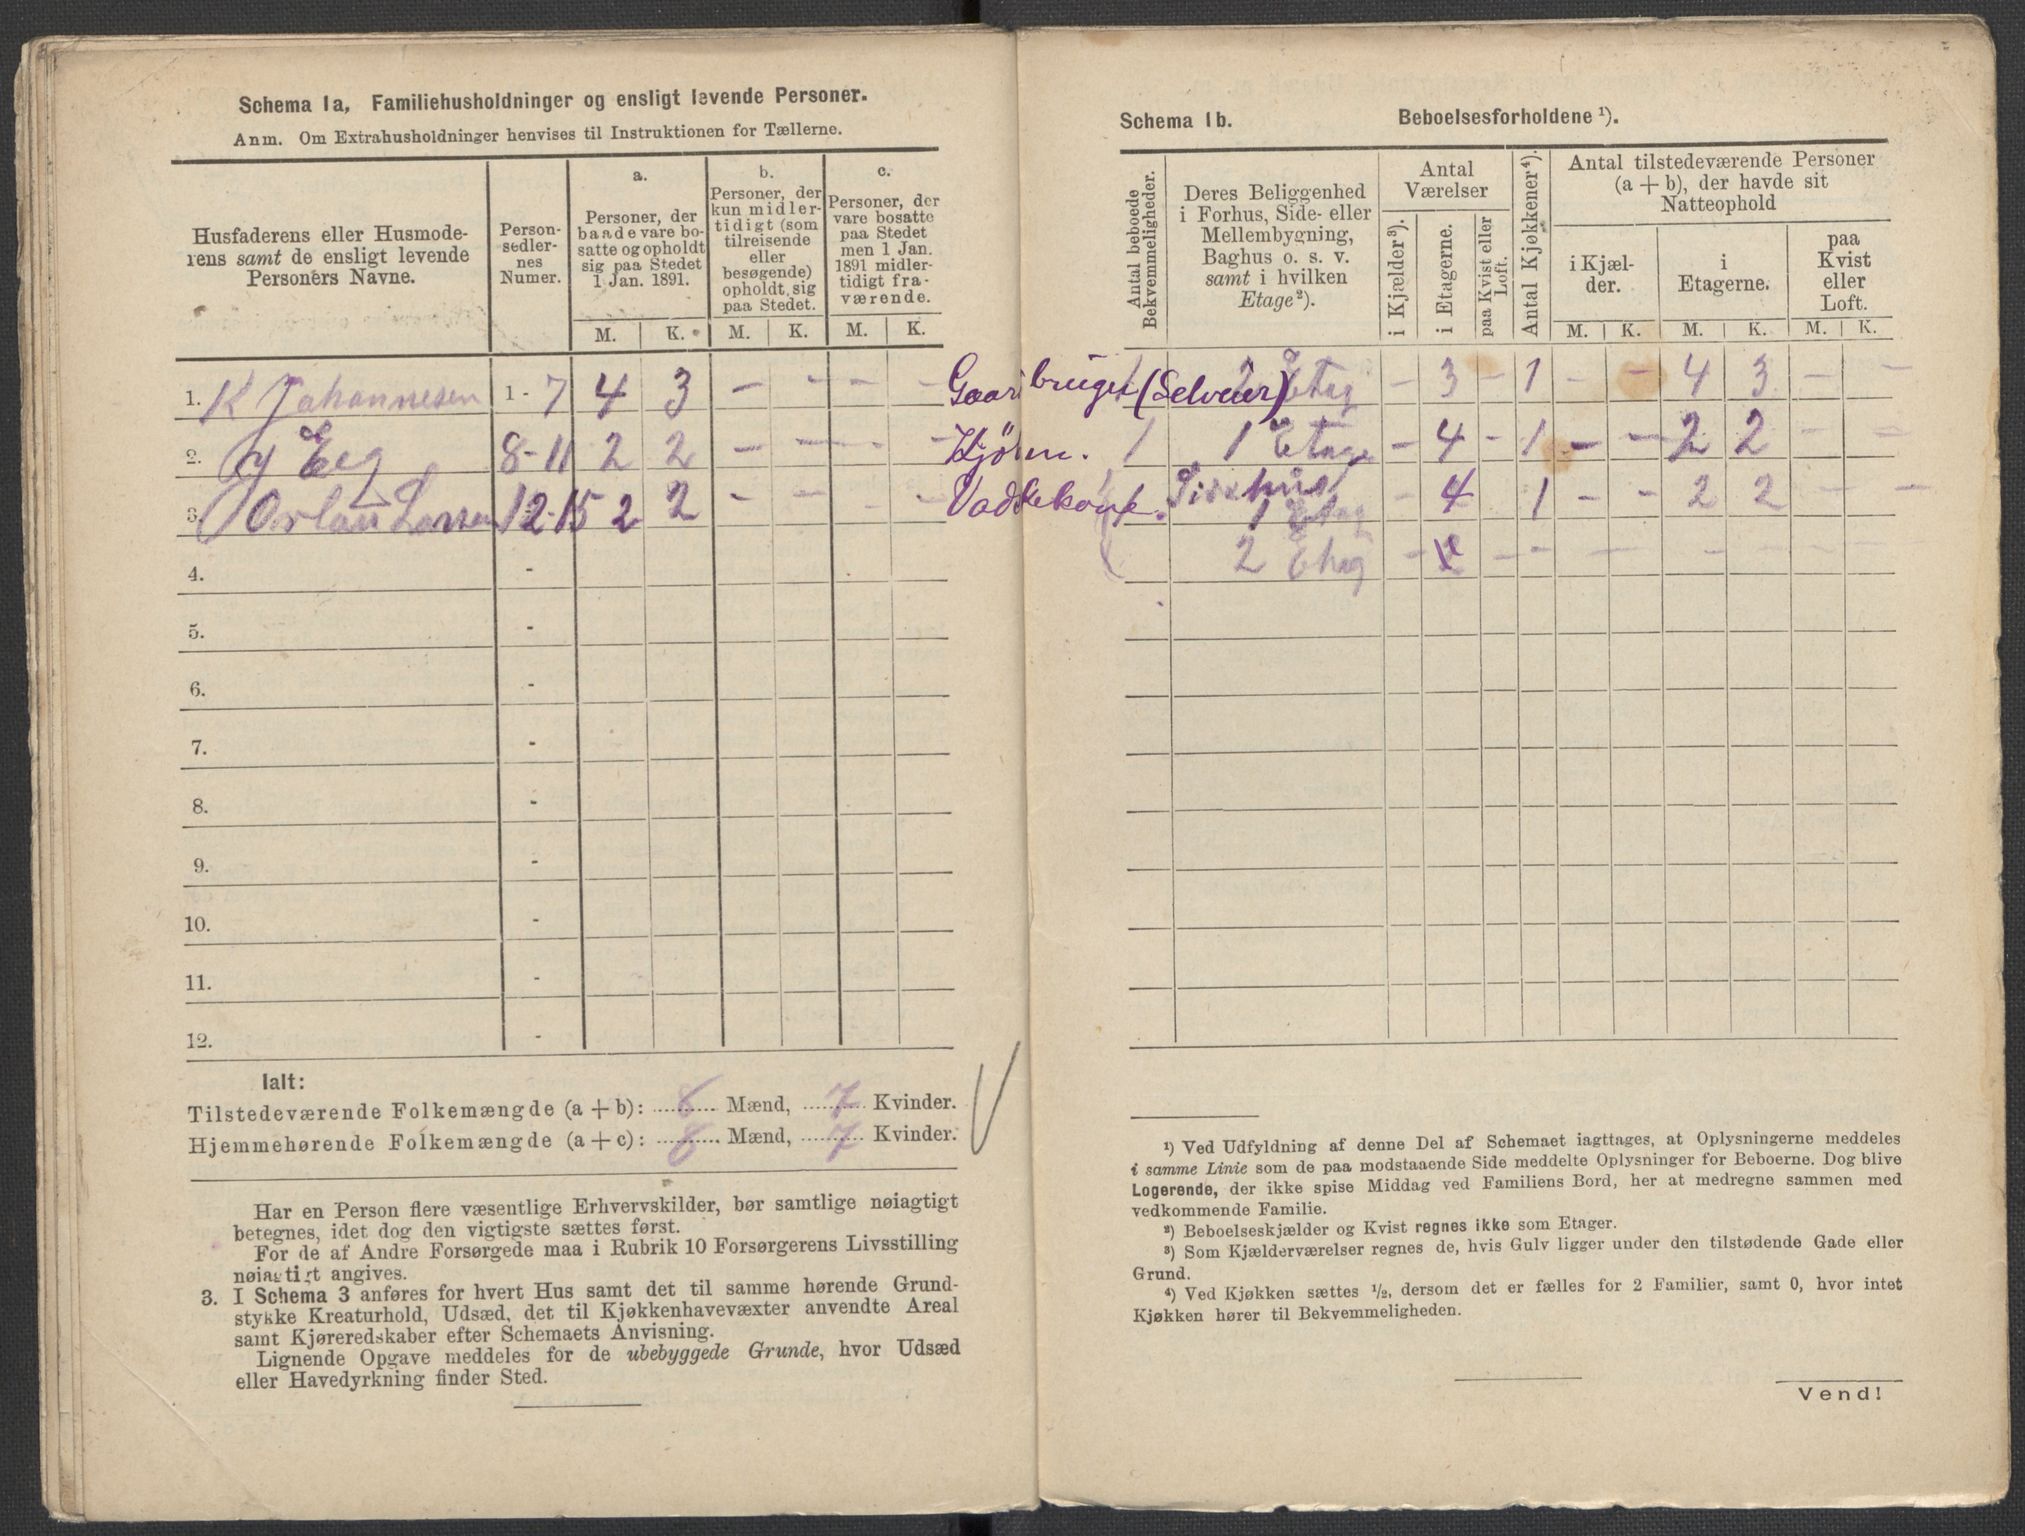 Schema 1a, Familiehusholdninger og ensligt levende Personer.
Anm. Om Extrahusholdninger henvises til Instruktionen for Tællerne.
Husfaderens eller Husmode-
rens samt de ensligt levende
Personers Navne.
Person-
sedler-
nes
Numer.
a.
Personer, der
baade vare bo-
satte og opholdt
sig paa Stedet
1 Jan. 1891.
b.
Personer, der
kun midler-
tidigt (som
tilreisende
eller
besøgende)
opholdt sig
paa Stedet.
c.
Personer, der
vare bosatte
paa Stedet
men 1 Jan.
1891 midler-
tidigt fra-
værende.
M. K. M. K. M. K.
1. K Johannesen 1 - 7 4 3 — — — —
2. Eeg 8-11 2 2 — — — —
3. Larsen 12-15 2 2 — — — —
4. -
5. -
6. -
7. -
8. -
9. -
10. -
11. -
12. -
Ialt:
Tilstedeværende Folkemængde (a + b): 8 Mænd, 7 Kvinder.
Hjemmehørende Folkemængde (a + c): 8 Mænd, 7 Kvinder.
Har en Person flere væsentlige Erhvervskilder, bør samtlige nøiagtigt
betegnes, idet dog den vigtigste sættes først.
For de af Andre Forsørgede maa i Rubrik 10 Forsørgerens Livsstilling
nøiagtigt angives.
3. I Schema 3 anføres for hvert Hus samt det til samme hørende Grund-
stykke Kreaturhold, Udsæd, det til Kjøkkenhavevæxter anvendte Areal
samt Kjøreredskaber efter Schemaets Anvisning.
Lignende Opgave meddeles for de ubebyggede Grunde, hvor Udsæd
eller Havedyrkning finder Sted.
Schema 1b. Beboelsesforholdene ¹).
Antal beboede
Bekvemmeligheder.
Deres Beliggenhed
i Forhus, Side- eller
Mellembygning,
Baghus o. s. v.
samt i hvilken
Etage ²).
Antal
Værelser
i Kjælder ³).
i Etagerne.
paa Kvist eller
Loft.
Antal Kjøkkener ⁴).
Antal tilstedeværende Personer
(a + b), der havde sit
Natteophold
i Kjæl-
der.
i
Etagerne.
paa
Kvist
eller
Loft.
M. K. M. K. M. K.
Gaardbruger (Selveier) 1 2 Etag — 3 — 1 — — 4 3 — —
1 1 Etage — 4 — 1 — — 2 2 — —
1 Etag — 4 1 — — 2 2 — —
2 Etag — — — — — — — —
¹) Ved Udfyldning af denne Del af Schemaet iagttages, at Oplysningerne meddeles
i samme Linie som de paa modstaaende Side meddelte Oplysninger for Beboerne. Dog blive
Logerende, der ikke spise Middag ved Familiens Bord, her at medregne sammen med
vedkommende Familie.
²) Beboelseskjælder og Kvist regnes ikke som Etager.
³) Som Kjælderværelser regnes de, hvis Gulv ligger under den tilstødende Gade eller
Grund.
⁴) Ved Kjøkken sættes ½, dersom det er fælles for 2 Familier, samt 0, hvor intet
Kjøkken hører til Bekvemmeligheden.
Vend!